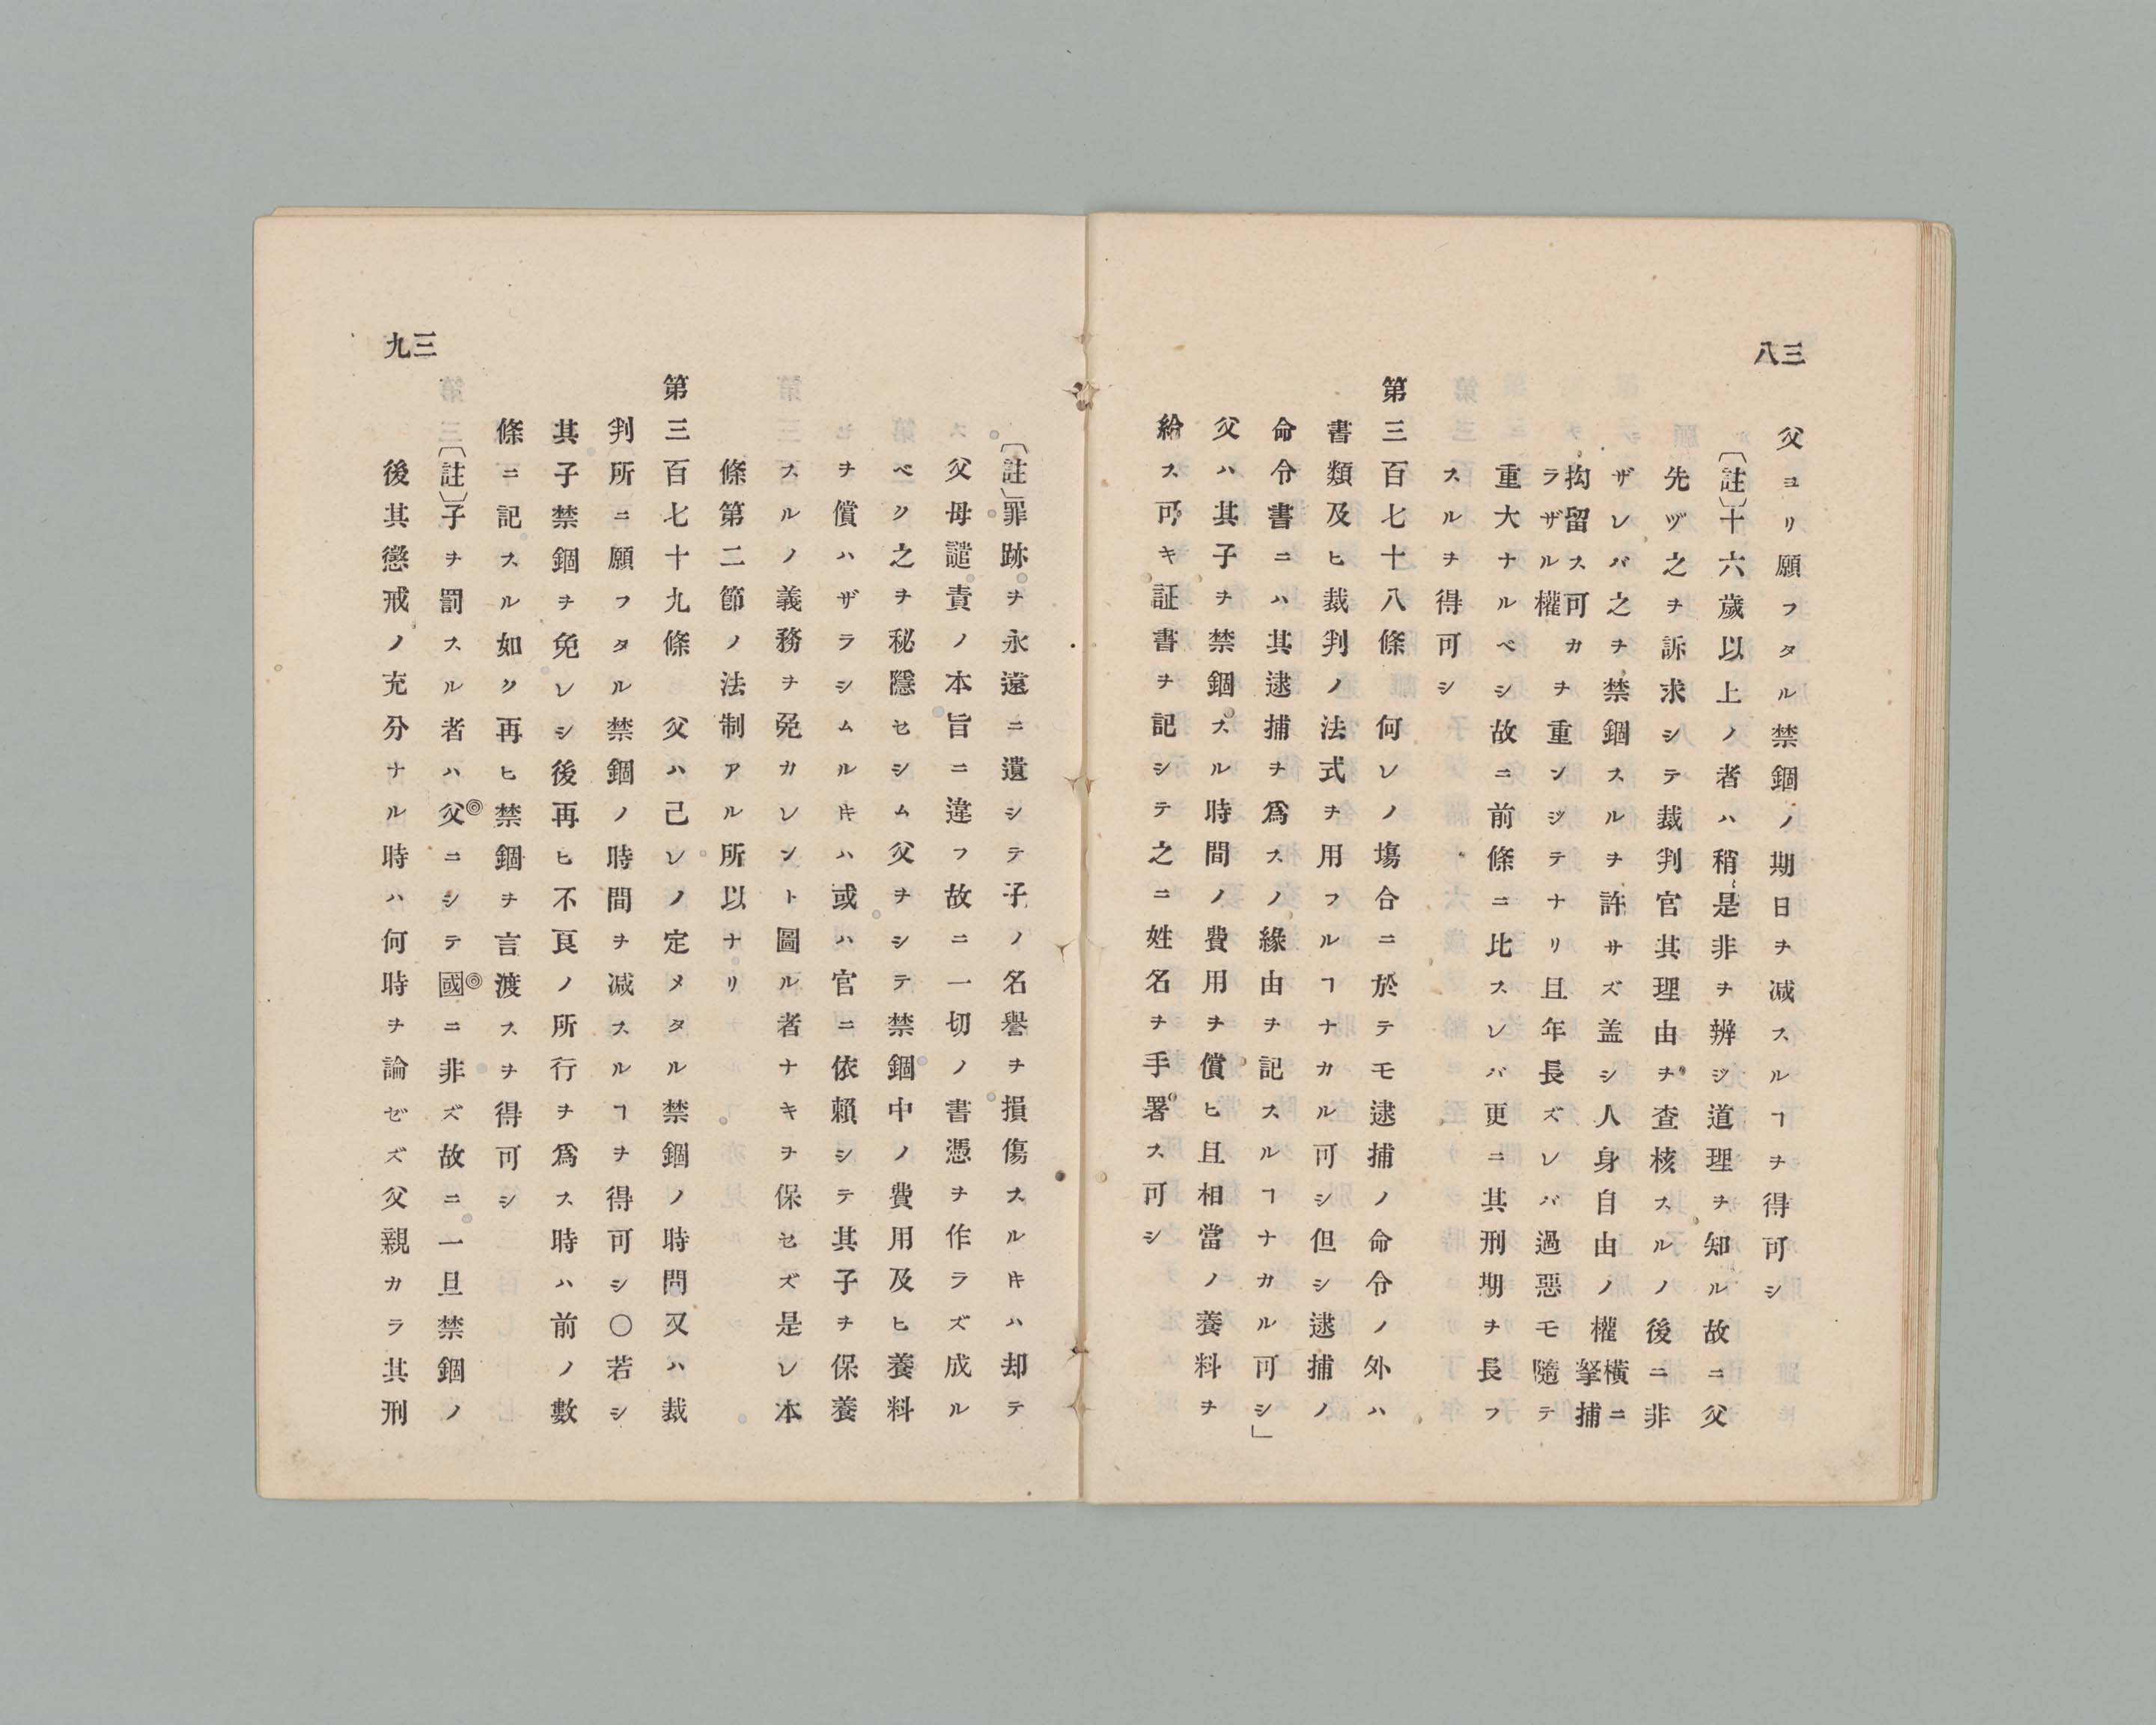 三八
父ヨリ願フタル禁錮ノ期日ヲ减スルヿヲ得可シ
〔註〕十六歲以上ノ者ハ稍是非ヲ辨ジ道理ヲ知ル故ニ父
先ヅ之ヲ訴求シテ裁判官其理由ヲ査核スルノ後ニ非
ザレバ之ヲ禁錮スルヲ許サズ盖シ人身自由ノ權橫ニ拏捕
拘留ス可カラザル權ヲ重ンジテナリ且年長ズレバ過惡モ隨テ
重大ナルベシ故ニ前條ニ比スレバ更ニ其刑期ヲ長フ
スルヲ得可シ
第三百七十八條 何レノ塲合ニ於テモ逮捕ノ命令ノ外ハ
書類及ヒ裁判ノ法式ヲ用フルヿナカル可シ但シ逮捕ノ
命令書ニハ其逮捕ヲ爲スノ緣由ヲ記スルヿナカル可シ」
父ハ其子ヲ禁錮スル時間ノ費用ヲ償ヒ且相當ノ養料ヲ
給ス可キ証書ヲ記シテ之ニ姓名ヲ手署ス可シ
三九
〔註〕罪跡ヲ永遠ニ遺シテ子ノ名譽ヲ損傷スルキハ却テ
父母譴責ノ本旨ニ違フ故ニ一切ノ書憑ヲ作ラズ成ル
ベク之ヲ秘隱セシム父ヲシテ禁錮中ノ費用及ヒ養料
ヲ償ハザラシムルキハ或ハ官ニ依賴シテ其子ヲ保養
スルノ義務ヲ免カレント圖ル者ナキヲ保セズ是レ本
條第二節ノ法制アル所以ナリ
第三百七十九條 父ハ己レノ定メタル禁錮ノ時間又ハ裁
判所ニ願フタル禁錮ノ時間ヲ减スルヿヲ得可シ〇若シ
其子禁錮ヲ免レシ後再ヒ不良ノ所行ヲ爲ス時ハ前ノ數
條ニ記スル如ク再ヒ禁錮ヲ言渡スヲ得可シ
〔註〕子ヲ罰スル者ハ父ニシテ國ニ非ズ故ニ一旦禁錮ノ
後其懲戒ノ充分ナル時ハ何時ヲ論ゼズ父親カラ其刑